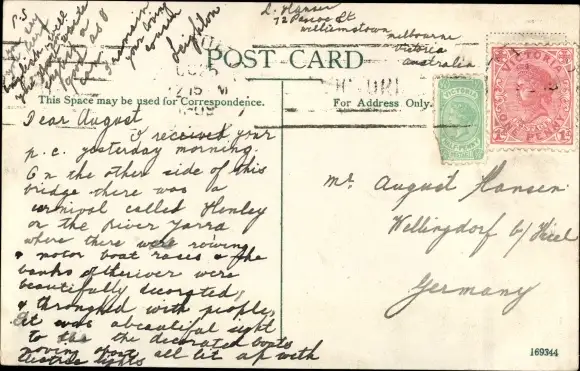 L. Hansen
72 Pascoe St
Williamstown
Melbourne
Victoria
Australia
P.S
I remain
your loving
cousin
Leighton
POST CARD
12 15
This Space may be used for Correspondence.
For Address Only.
VICTORIA
HALF PENNY
VICTORIA
ONE PENNY
1D 1D
Dear August
I received your
p.c. yesterday morning.
On the other side of this
bridge there was a
carnival called Henley
on the river Yarra
where there were rowing
& motor boat races & the
banks of the river were
beautifully decorated,
& thronged with people,
it was a beautiful sight
to the decorated boats
moving about all lit up with
electric lights
Mr August Hansen
Wellingdorf b/ Kiel
Germany
169344